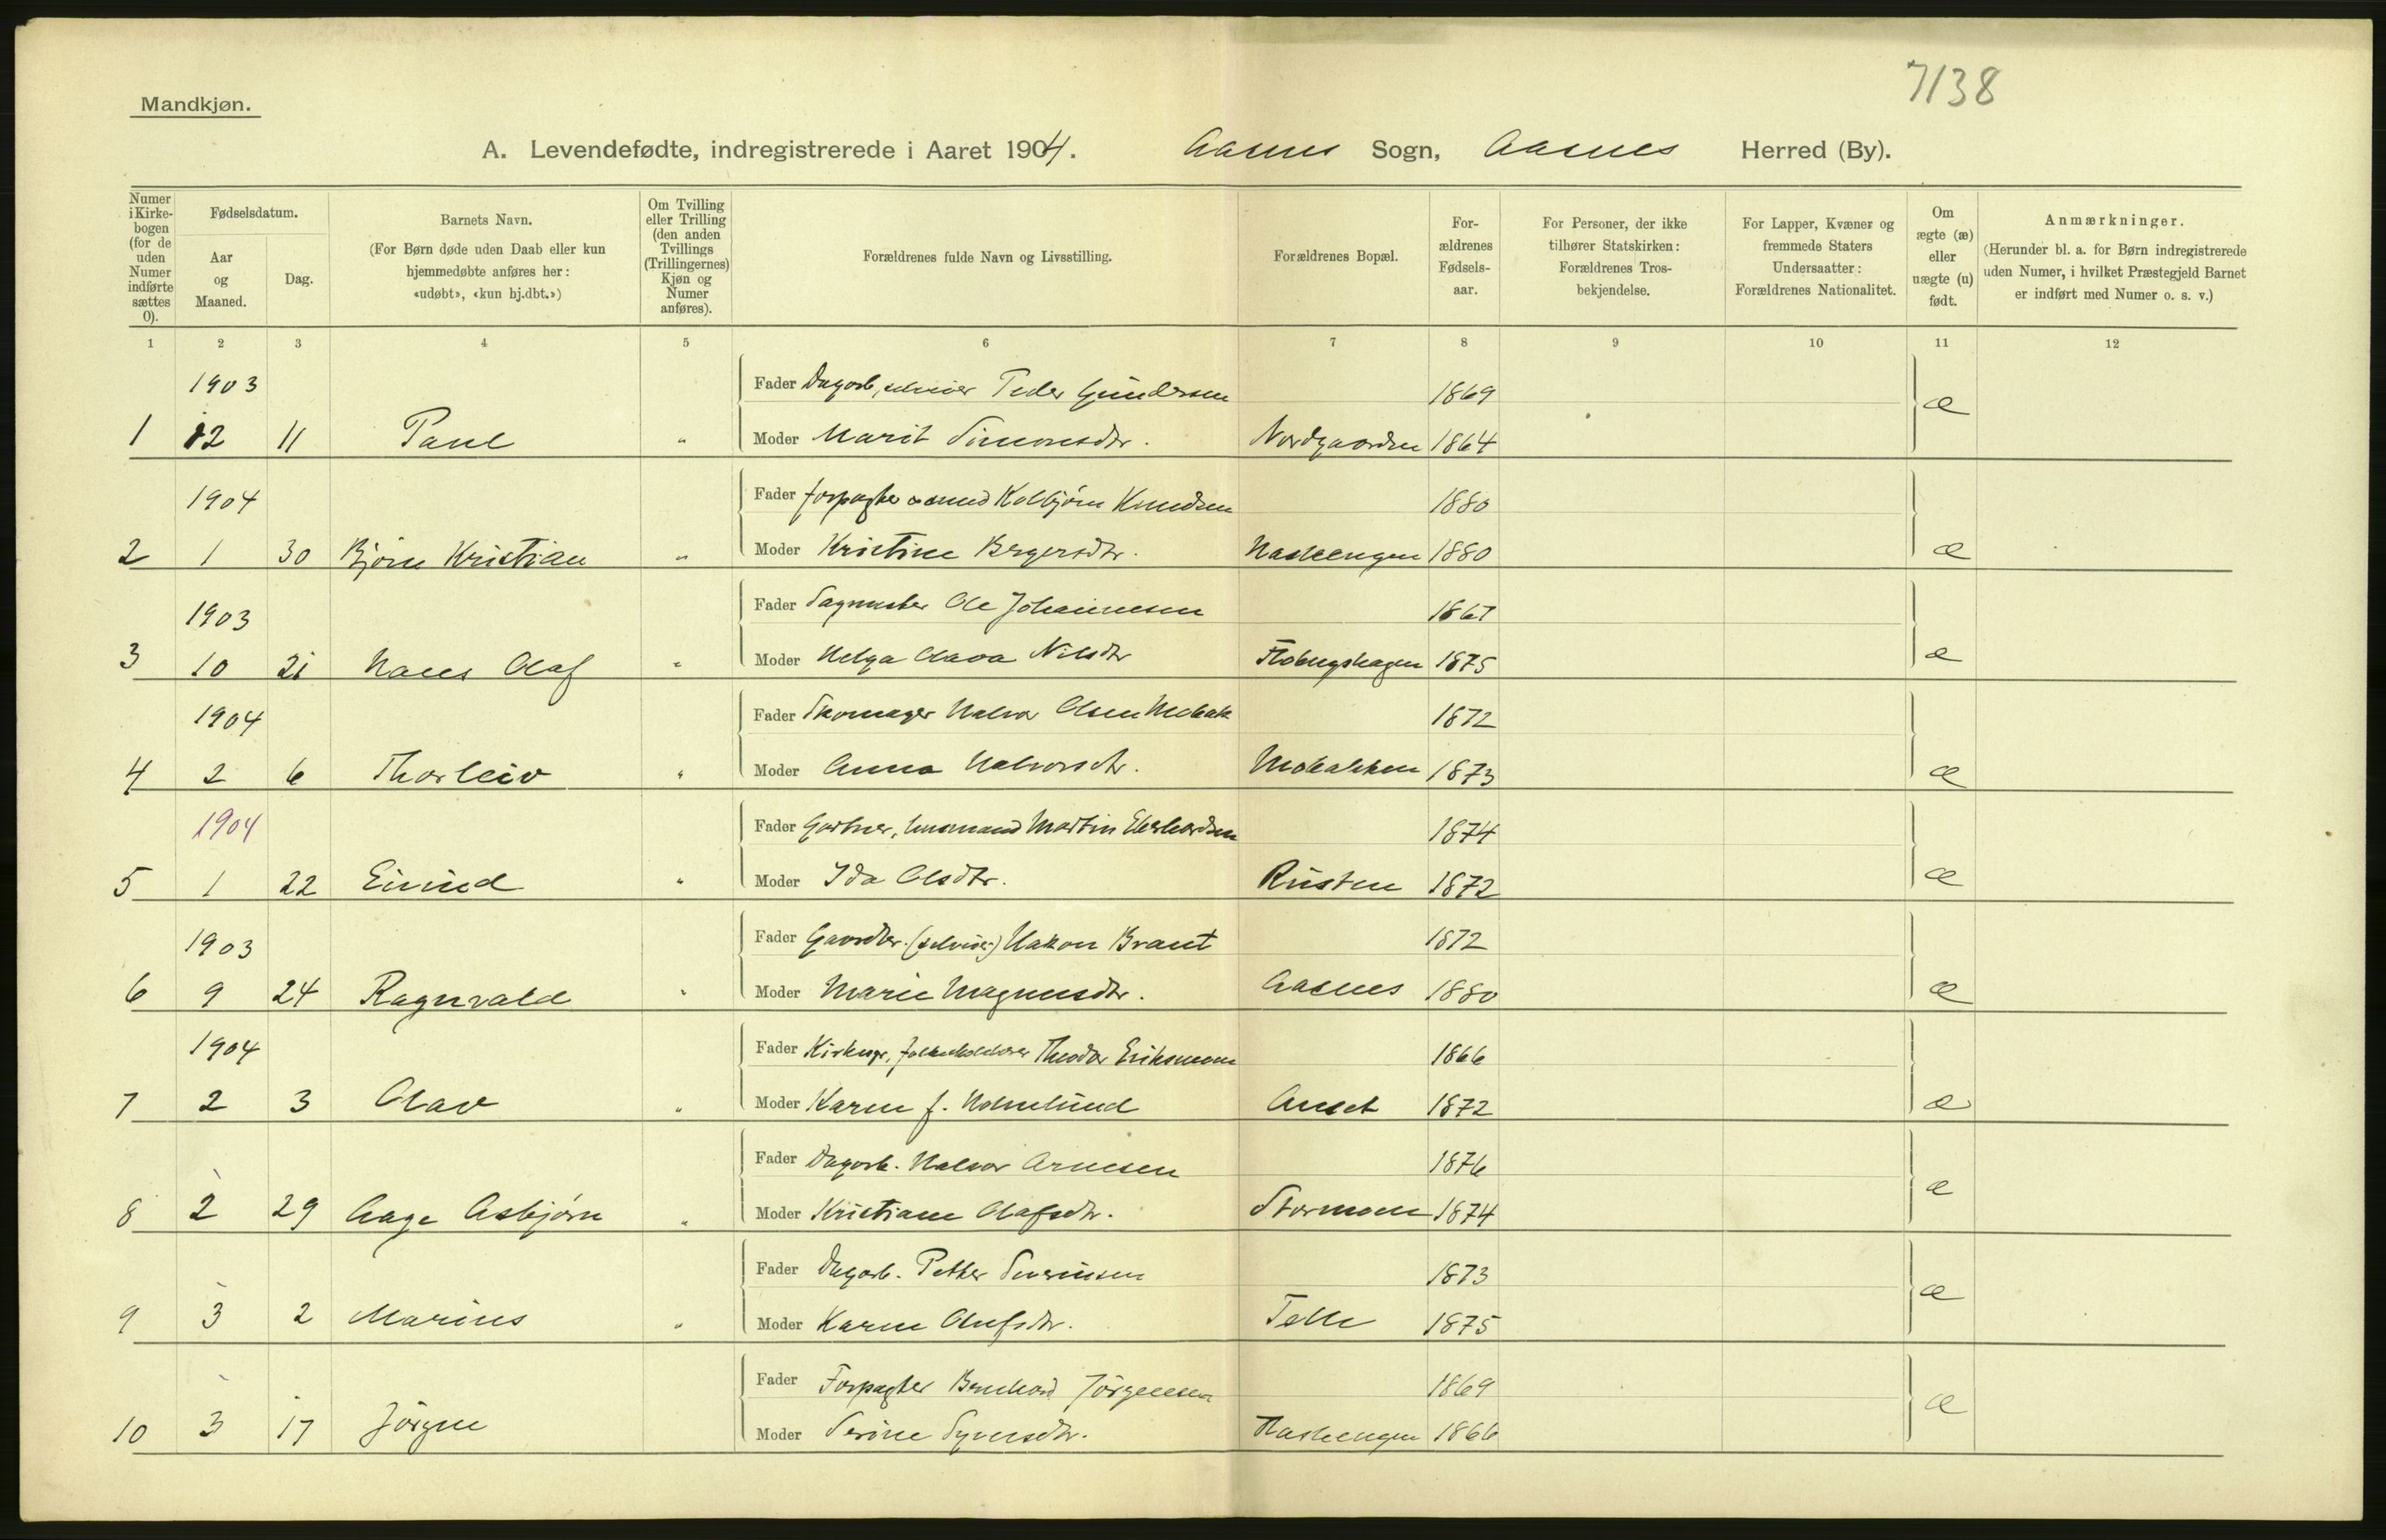 7138
Mandkjøn.
A. Levendefødte, indregistrerede i Aaret 1904. Aasnes Sogn, Aasnes Herred (By).
Numer i Kirke-bogen (for de uden Numer indførte sættes 0).
Fødselsdatum.
Aar og Maaned.
Dag.
Barnets Navn.
(For Børn døde uden Daab eller kun hjemmedøbte anføres her: «udøbt», «kun hj.dbt.»)
Om Tvilling eller Trilling (den anden Tvillings (Trillingernes) Kjøn og Numer anføres).
Forældrenes fulde Navn og Livsstilling.
Forældrenes Bopæl.
For-ældrenes Fødsels-aar.
For Personer, der ikke tilhører Statskirken: Forældrenes Tros-bekjendelse.
For Lapper, Kvæner og fremmede Staters Undersaatter: Forældrenes Nationalitet.
Om ægte (æ) eller uægte (u) født.
Anmærkninger.
(Herunder bl. a. for Børn indregistrerede uden Numer, i hvilket Præstegjeld Barnet er indført med Numer o. s. v.)
1 2 3 4 5 6 7 8 9 10 11 12
1903 Fader Dagarb, selveier Peder Gundersen 1869 æ
1 12 11 Paul " Moder Marit Simonsdtr. Nordgaarden 1864
1904 Fader forpagter Kolbjørn Knudsen 1880
2 1 30 Bjørn Kristian " Moder Kristine Bergersdtr. Hasleengen 1880 æ
1903 Fader Sagmester Ole Johannesen 1867
3 10 21 Hans Olaf " Moder Helga Nilsdtr 1875 æ
1904 Fader Skomager Halvor Olsen Mobak 1872
4 2 6 Thorleiv " Moder Anna Halvorsdtr. Mobakken 1873 æ
1904 Fader Gartner, husmand Martin Eberhardsen 1874
5 1 22 Eivind " Moder Ida Olsdtr. Rusten 1872 æ
1903 Fader Gaardbr. (selveier) Hakon Brant 1872
6 9 24 Ragnvald " Moder Marie Magnusdtr. Aasnes 1880 æ
1904 Fader Kirkesgr. Theodor Eriksmoen 1866
7 2 3 Olav " Moder Karen f. Holmlund Anset 1872 æ
Fader Dagarb. Halvor Arnesen 1876
8 2 29 Aage Asbjørn " Moder Kristiane Olafsdtr. Stormoen 1874 æ
Fader Dagarb. Petter Severinsen 1873
9 3 2 Marius " Moder Karen Olufsdtr. Telle 1875 æ
Fader Forpagter Bernhard Jørgensen 1869
10 3 17 Jørgen Moder Serine Syversdtr. Hasleengen 1866 æ